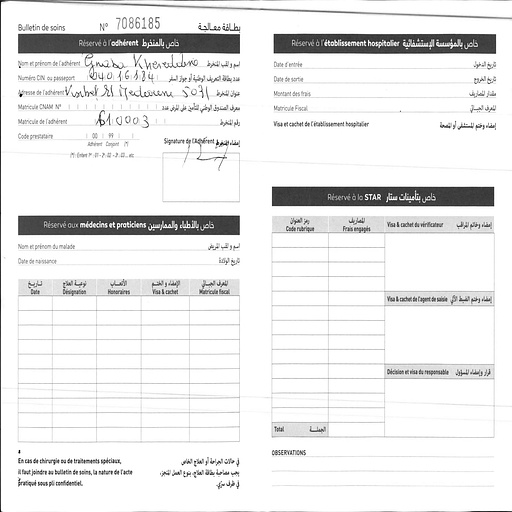 Bulletin de soins N° 7086185 بطاقة معالجة
Réservé à l'adhérent خاص بالمنخرط
Nom et prénom de l'adhérent اسم و لقب المنخرط
Numéro CIN ou passeport 04016184 عدد بطاقة التعريف الوطنية أو جواز السفر
Adresse de l'adhérent 5031 عنوان المنخرط
Matricule CNAM N° معرف الصندوق الوطني للتأمين على المرض عدد
Matricule de l'adhérent 610003 رقم المنخرط
Code prestataire 00 99
Adhérent Conjoint (*)
(*) : Enfant 1er : 01 - 2e : 02 - 3e : 03 ... etc
Signature de l'Adhérent إمضاء المنخرط
Réservé aux médecins et praticiens خاص بالأطباء والممارسين
Nom et prénom du malade اسم و لقب المريض
Date de naissance تاريخ الولادة
التاريخ Date
نوعية العلاج Désignation
الأتعاب Honoraires
الإمضاء و الختم Visa & cachet
المعرف الجبائي Matricule fiscal
En cas de chirurgie ou de traitements spéciaux,
il faut joindre au bulletin de soins, la nature de l'acte
pratiqué sous pli confidentiel.
في حالات الجراحة أو العلاج الخاص
يجب مصاحبة بطاقة العلاج، بنوع العمل المنجز،
في ظرف سري.
Réservé à l'établissement hospitalier خاص بالمؤسسة الإستشفائية
Date d'entrée تاريخ الدخول
Date de sortie تاريخ الخروج
Montant des frais مقدار المصاريف
Matricule Fiscal المعرف الجبائي
Visa et cachet de l'établissement hospitalier إمضاء وختم المستشفى أو المصحة
Réservé à la STAR خاص بتأمينات ستار
رمز العنوان Code rubrique
المصاريف Frais engagés
Visa & cachet du vérificateur إمضاء وخاتم المراقب
Visa & cachet de l'agent de saisie إمضاء وختم الضبط الآلي
Décision et visa du responsable قرار وإمضاء المسؤول
Total الجملة
OBSERVATIONS